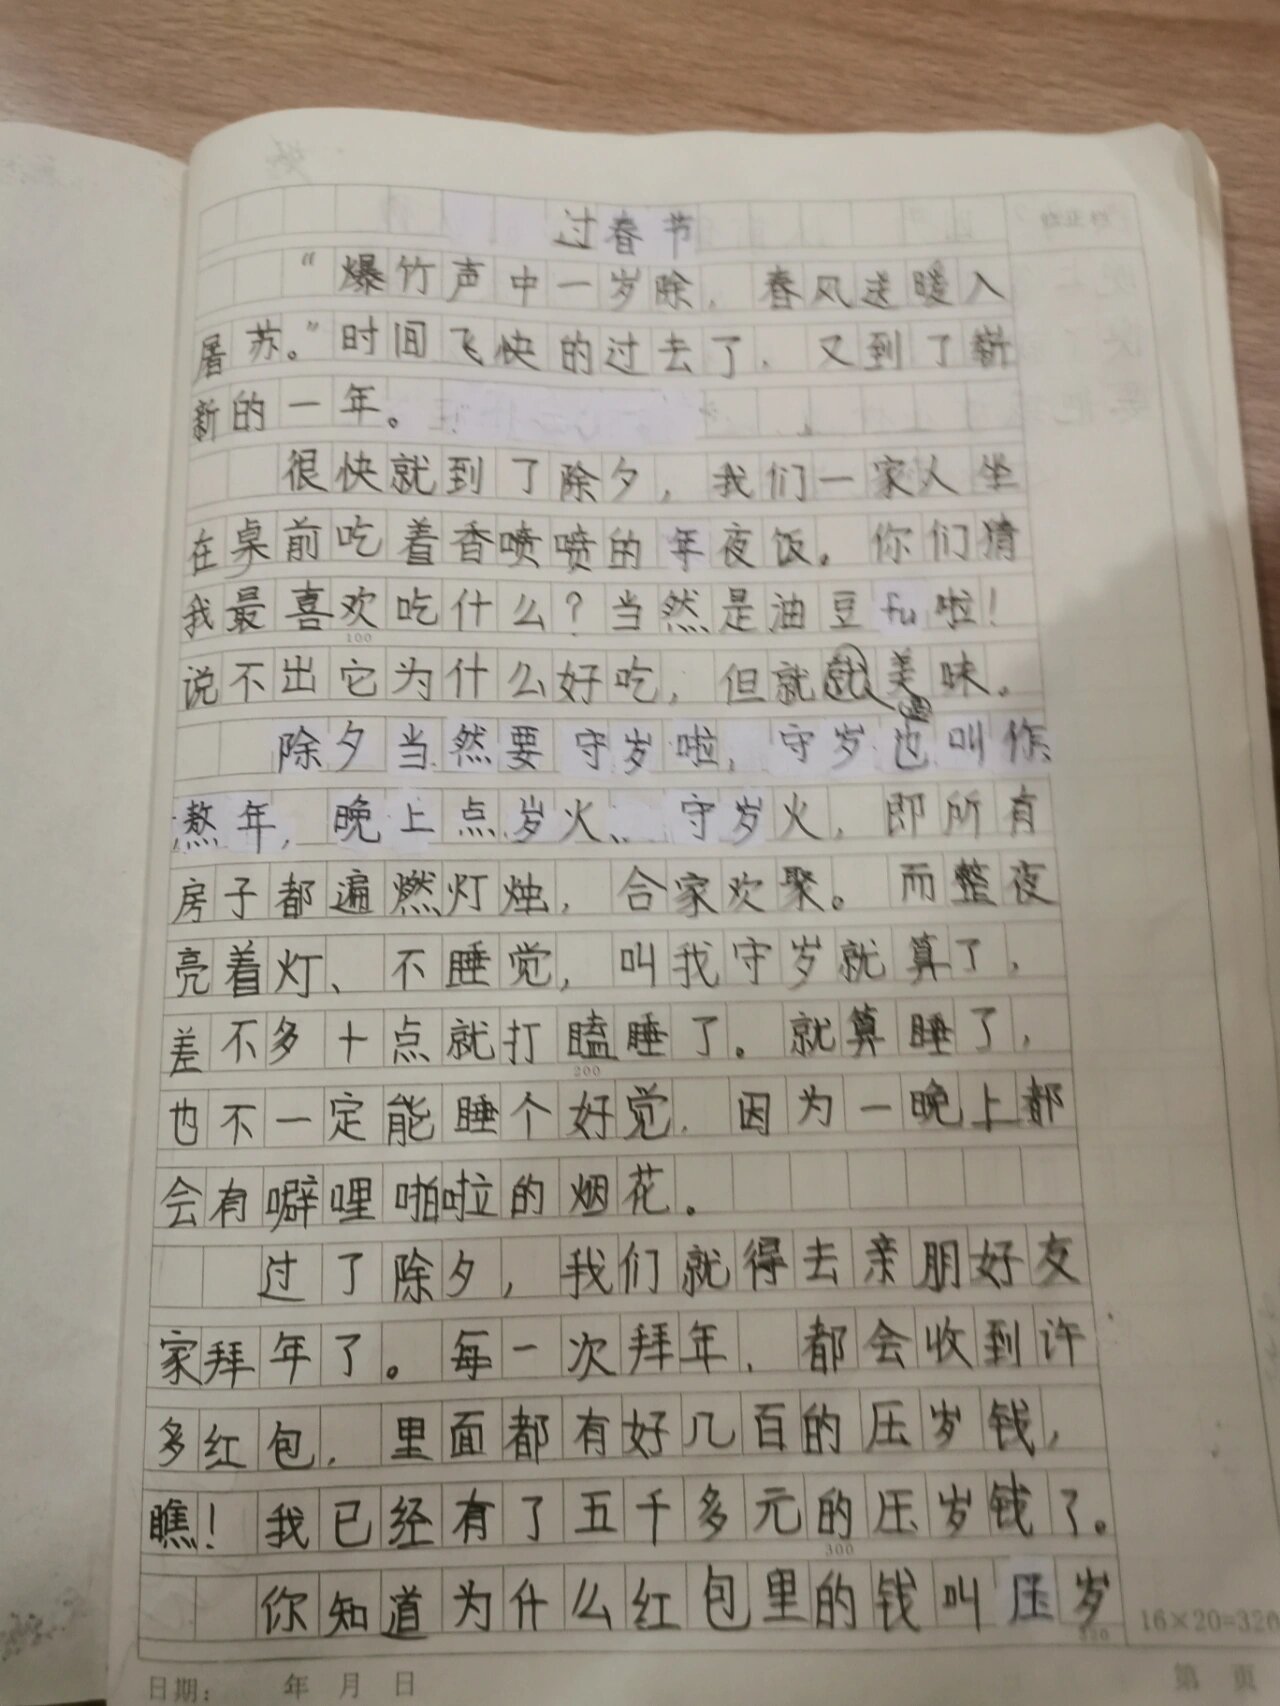 过春节
“爆竹声中一岁除，春风送暖入
屠苏。”时间飞快的过去了，又到了崭
新的一年。
很快就到了除夕，我们一家人坐
在桌前吃着香喷喷的年夜饭。你们猜
我最喜欢吃什么？当然是油豆fu啦！
100
说不出它为什么好吃，但就就美味。
除夕当然要守岁啦，守岁也叫作
熬年，晚上点岁火、守岁火，即所有
房子都遍燃灯烛，合家欢聚。而整夜
亮着灯、不睡觉，叫我守岁就算了，
差不多十点就打瞌睡了。就算睡了，
200
也不一定能睡个好觉，因为一晚上都
会有噼哩啪啦的烟花。
过了除夕，我们就得去亲朋好友
家拜年了。每一次拜年，都会收到许
多红包，里面都有好几百的压岁钱，
瞧！我已经有了五千多元的压岁钱了。
300
你知道为什么红包里的钱叫压岁
320
16×20=320
日期： 年 月 日
第 页